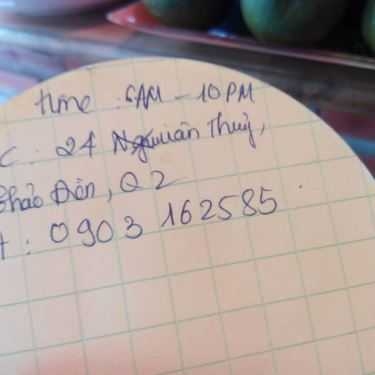 time : 6AM - 10PM
C : 24 Xuân Thuỷ,
Thảo Điền, Q2
T : 0903 162585.